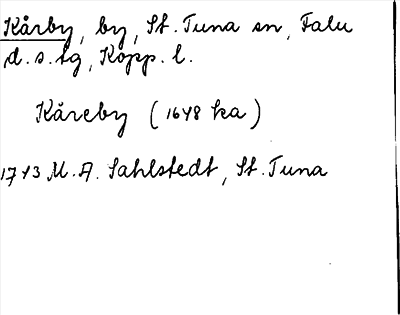 Kårby, by, St. Tuna sn, Falu
d.s.tg, Kopp. l.
Kåreby (1648 ka)
1743 M.A. Sahlstedt, St. Tuna